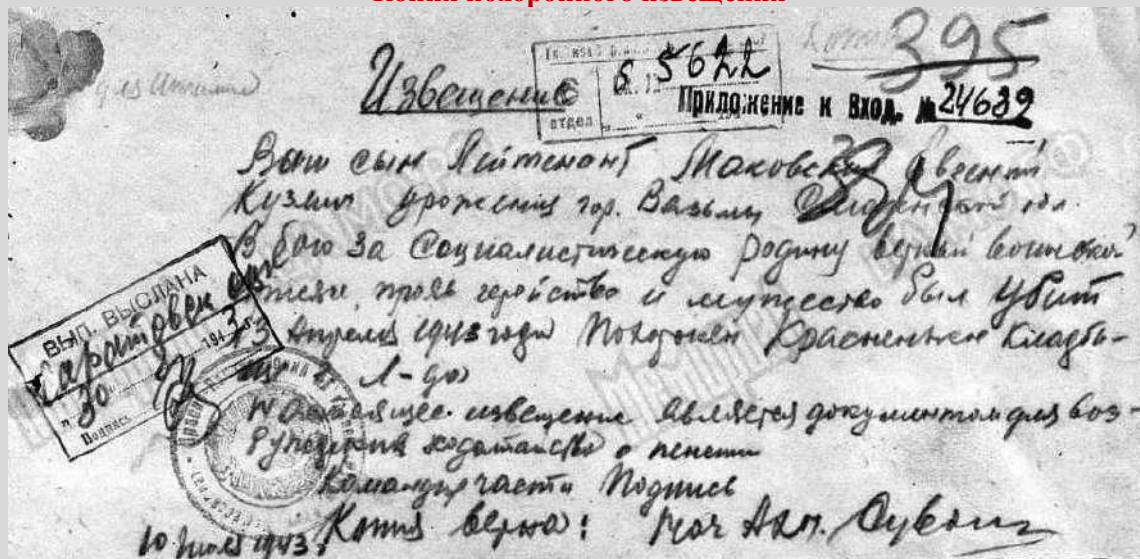 395
Извещение
5622
отдел
Приложение к Вход. № 24639
Ваш сын Лейтенант Маковский Евгений
Кузмич уроженец гор. Вязьмы
В бою за Социалистическую Родину верный воинской
прояв геройство и мужество был Убит
13 Апреля 1943 года Похоронен Красненькое Кладби-
ще Л-до
Настоящее извещение является документом для воз-
буждения ходатайства о пенсии
Командир части Подпись
Копия верна:
10 1943
ВЫП. ВЫСЛАНА
30
Подпись